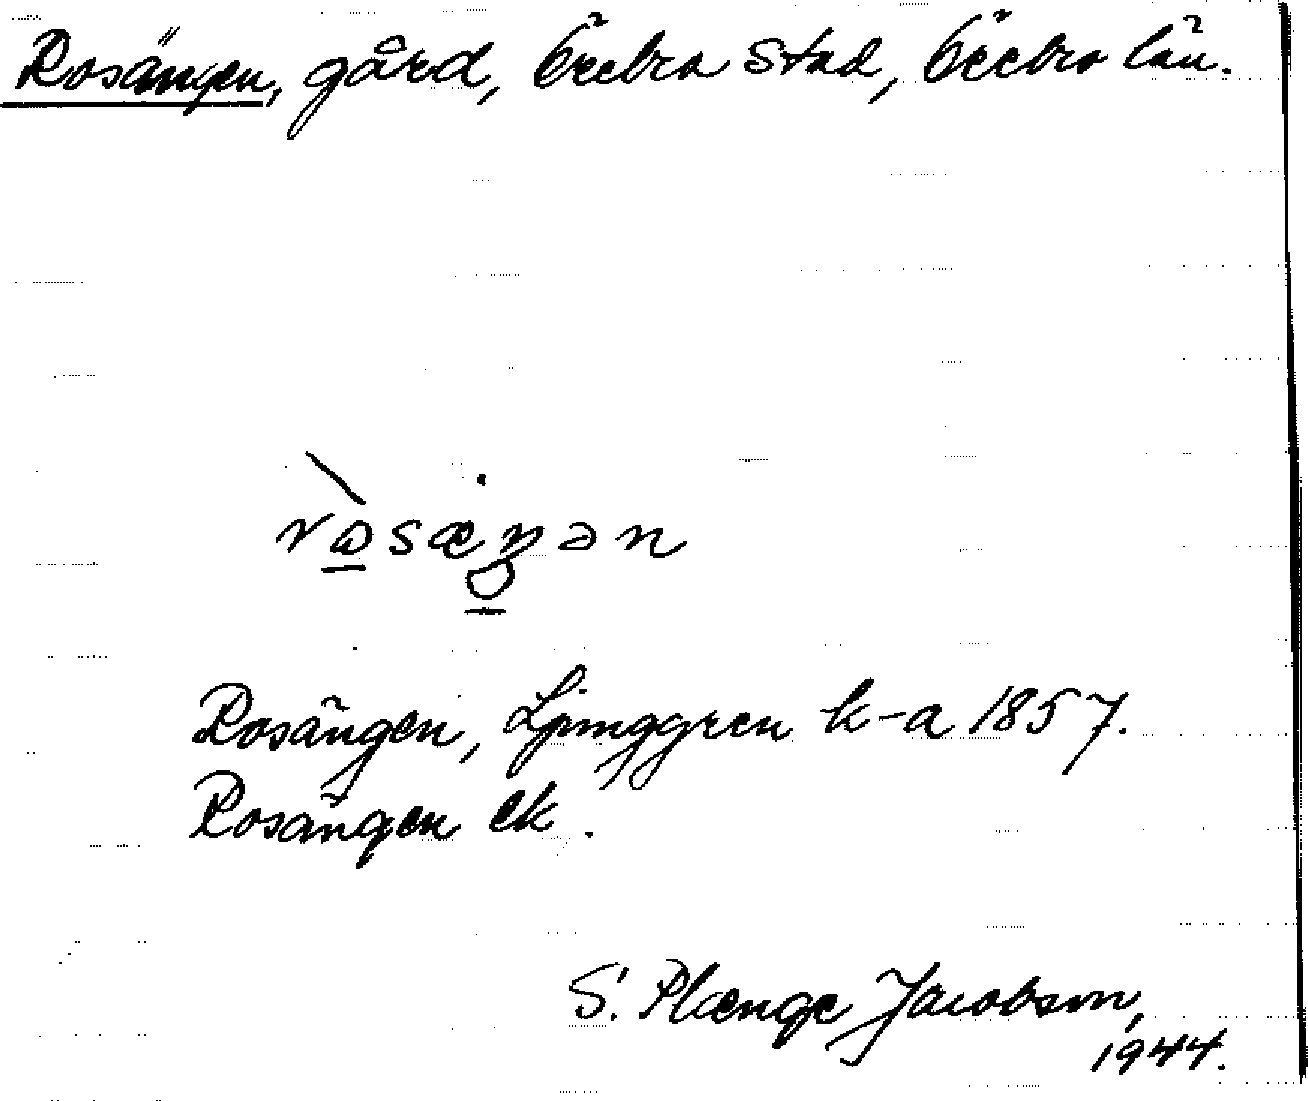 Rosängen, gård, Örebro stad, Örebro län.
rɷ̀sæŋən
Rosängen, Ljunggren k-a 1857.
Rosängen ek.
S. Plænge Jacobson,
1944.